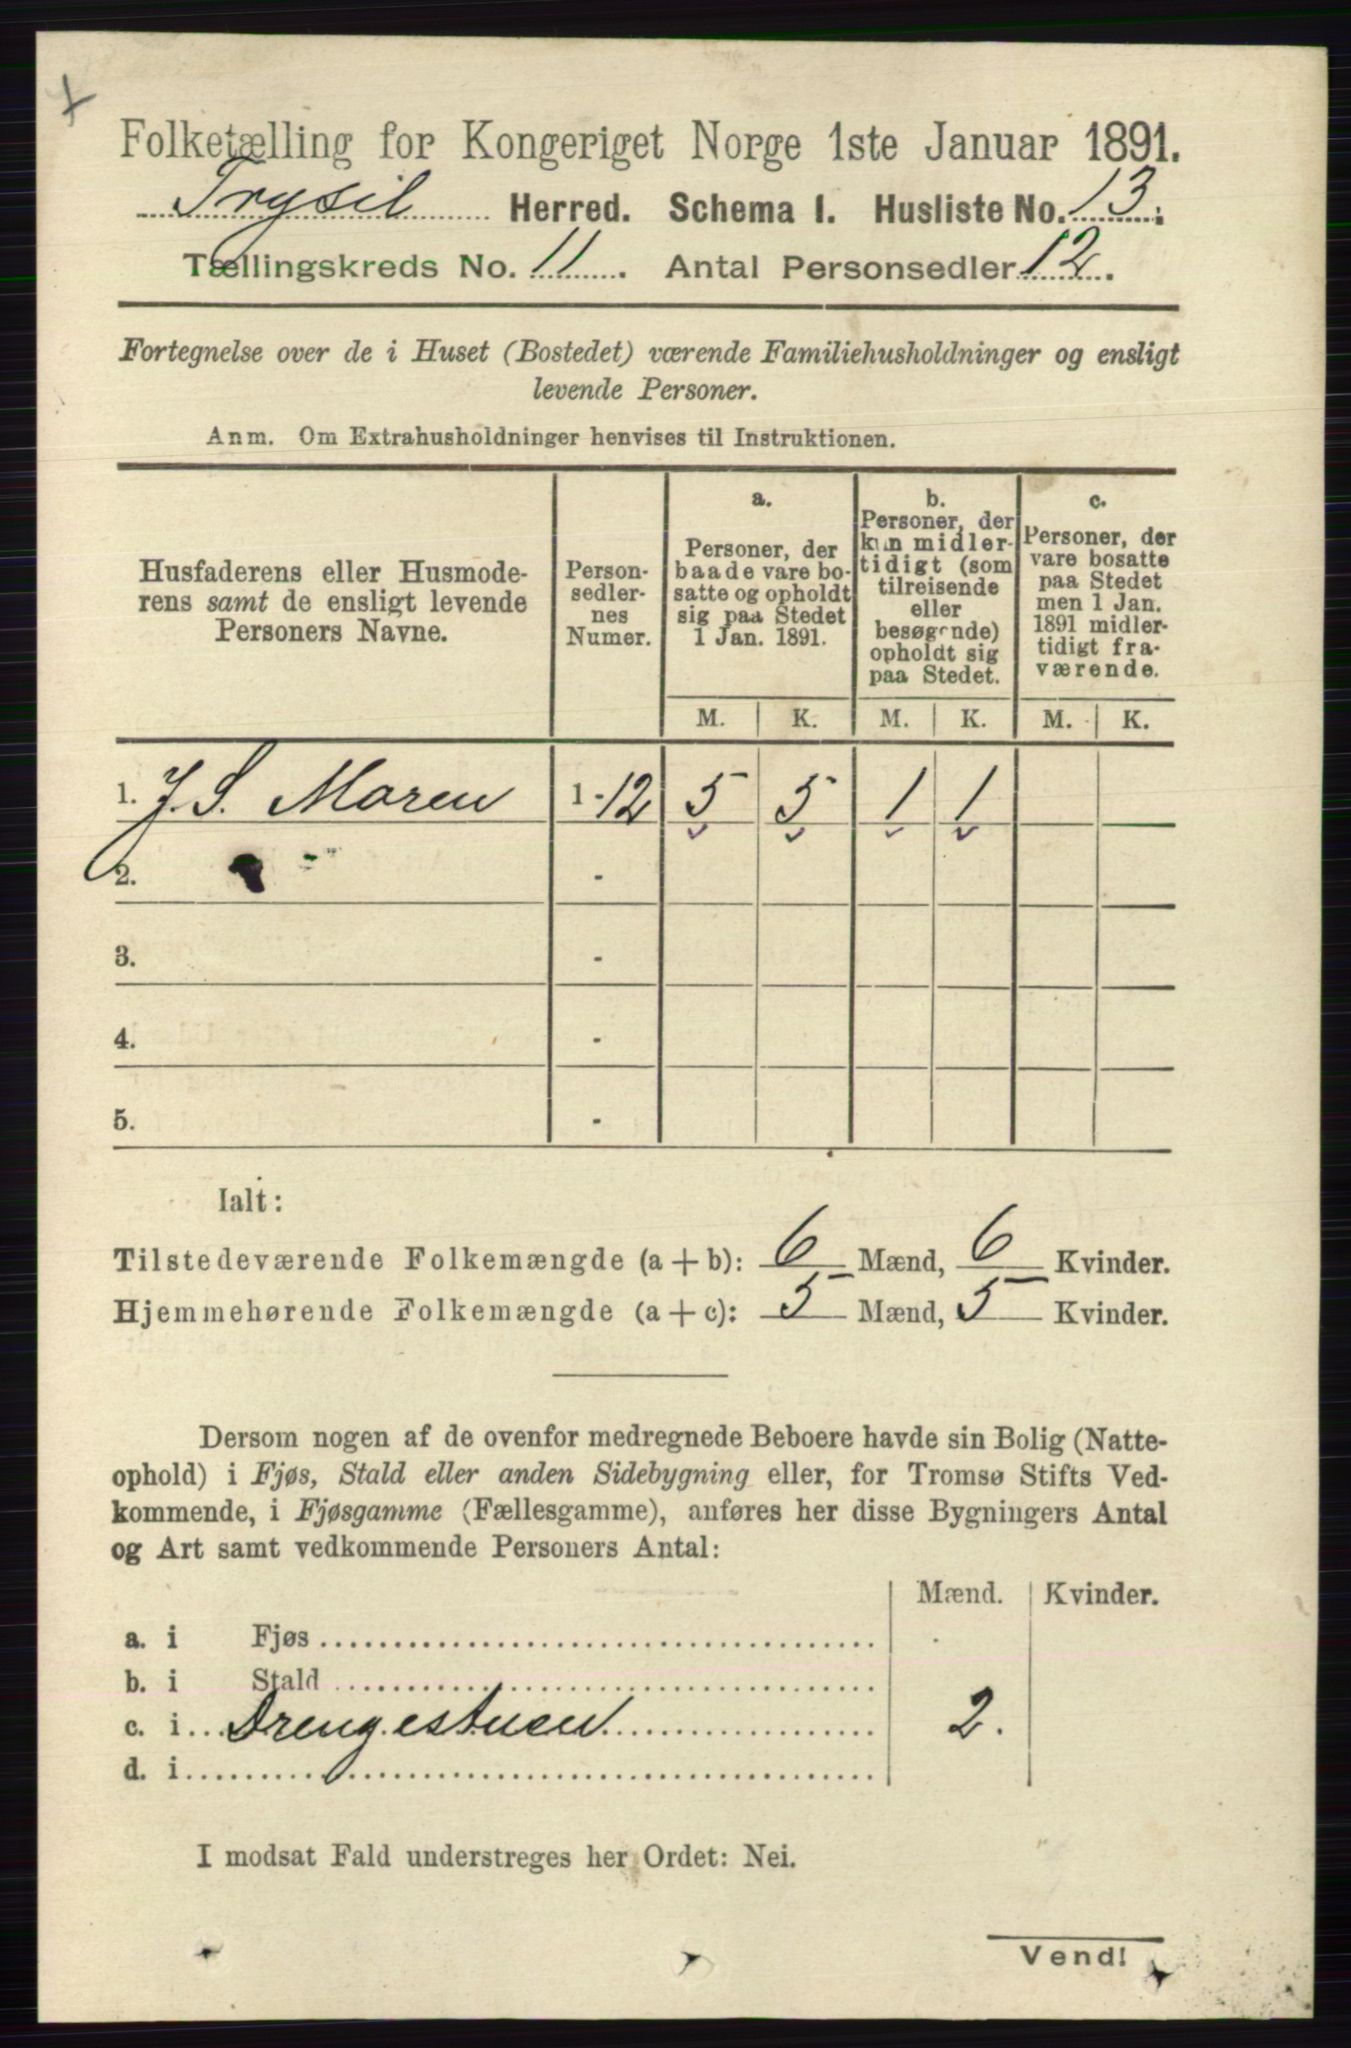 Folketælling for Kongeriget Norge 1ste Januar 1891.
Trysil Herred. Schema 1. Husliste No. 13.
Tællingskreds No. 11. Antal Personsedler 12.
Fortegnelse over de i Huset (Bostedet) værende Familiehusholdninger og ensligt
levende Personer.
Anm. Om Extrahusholdninger henvises til Instruktionen.
Husfaderens eller Husmode-
rens samt de ensligt levende
Personers Navne.
Person-
sedler-
nes
Numer.
a.
Personer, der
baade vare bo-
satte og opholdt
sig paa Stedet
1 Jan. 1891.
b.
Personer, der
kun midler-
tidigt (som
tilreisende
eller
besøgende)
opholdt sig
paa Stedet.
c.
Personer, der
vare bosatte
paa Stedet
men 1 Jan.
1891 midler-
tidigt fra-
værende.
M. K. M. K. M. K.
1. J. S. Moren 1-12 5 5 1 1
2. -
3. -
4. -
5. -
Ialt:
Tilstedeværende Folkemængde (a+b): 6 Mænd, 6 Kvinder.
Hjemmehørende Folkemængde (a+c): 5 Mænd, 5 Kvinder.
Dersom nogen af de ovenfor medregnede Beboere havde sin Bolig (Natte-
ophold) i Fjøs, Stald eller anden Sidebygning eller, for Tromsø Stifts Ved-
kommende, i Fjøsgamme (Fællesgamme), anføres her disse Bygningers Antal
og Art samt vedkommende Personers Antal:
Mænd. Kvinder.
a. i Fjøs
b. i Stald
c. i Drengestuen 2.
d. i
I modsat Fald understreges her Ordet: Nei.
Vend!